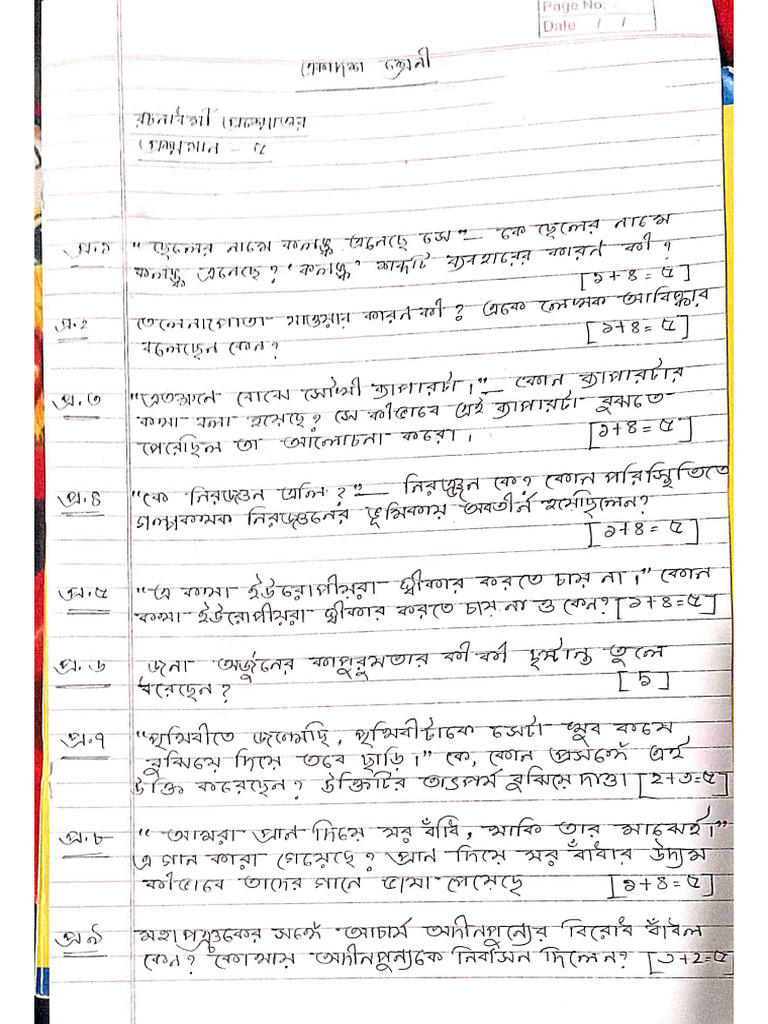 Page No:
Date / /
একাদশ শ্রেনী
রচনাধর্মী প্রশ্নোত্তর
প্রশ্নমান - ৫
প্র.১ "ছেলের নামে কলঙ্ক এনেছে সে" — কে ছেলের নামে
কলঙ্ক এনেছে? 'কলঙ্ক' শব্দটি ব্যবহারের কারন কী?
[১+৪=৫]
প্র.২ তেলেনাপোতা যাওয়ার কারন কী? একে লেখক আবিষ্কার
বলেছেন কেন? [১+৪=৫]
প্র.৩ "এতক্ষনে বোঝে সৌখী ব্যাপারটা।" — কোন ব্যাপারটার
কথা বলা হয়েছে? সে কীভাবে এই ব্যাপারটা বুঝতে
পেরেছিল তা আলোচনা করো। [১+৪=৫]
প্র.৪ "কে নিরঞ্জন এলি?" — নিরঞ্জন কে? কোন পরিস্থিতিতে
গল্পকথক নিরঞ্জনের ভূমিকায় অবতীর্ন হয়েছিলেন?
[১+৪=৫]
প্র.৫ "এ কথা ইউরোপীয়রা স্বীকার করতে চায় না।" কোন
কথা ইউরোপীয়রা স্বীকার করতে চায় না ও কেন? [১+৪=৫]
প্র.৬ জনা অর্জুনের কাপুরুষতার কী কী দৃষ্টান্ত তুলে
ধরেছেন? [5]
প্র.৭ "পৃথিবীতে জন্মেছি, পৃথিবীটাকে সেটা খুব কষে
বুঝিয়ে দিয়ে তবে ছাড়ি।" কে, কোন প্রসঙ্গে এই
উক্তি করেছেন? উক্তিটির তাৎপর্য বুঝিয়ে দাও। [২+৩=৫]
প্র.৮ "আমরা প্রান দিয়ে ঘর বাঁধি, থাকি তার মাঝেই।"
এ গান কারা গেয়েছে? প্রান দিয়ে ঘর বাঁধার উদ্যম
কীভাবে তাদের গানে ভাষা পেয়েছে [১+৪=৫]
প্র.৯ মহাপঞ্চকের সঙ্গে আচার্য অদীনপুন্যের বিরোধ বাঁধল
কেন? কোথায় অদীনপুন্যকে নির্বাসন দিলেন? [৩+২=৫]